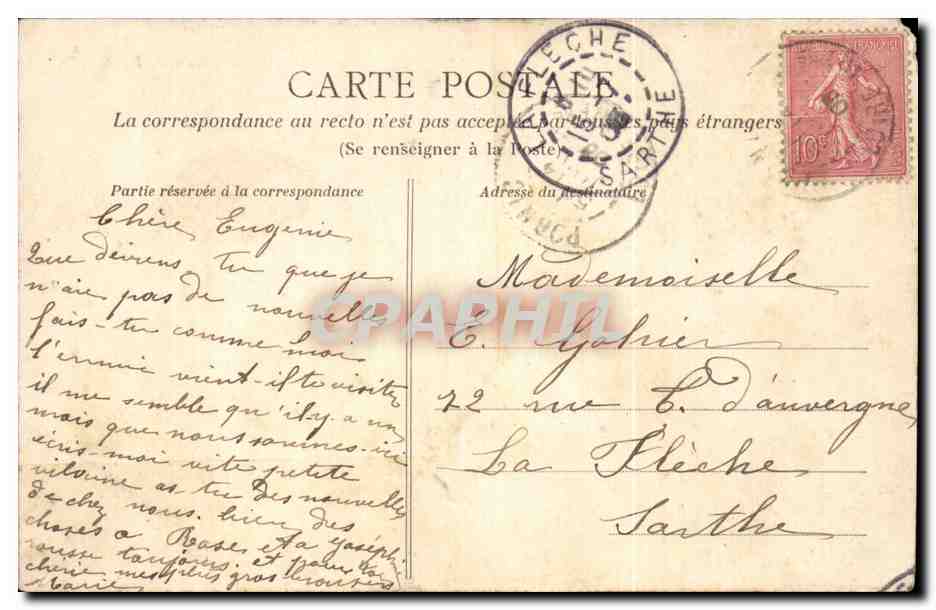 CARTE POSTALE
La correspondance au recto n'est pas acceptée par tous les pays étrangers
(Se renseigner à la Poste)
Partie réservée à la correspondance
Adresse du destinataire
LA FLECHE
SARTHE
10c
Chère Eugenie
Que deviens tu que je
n'aie pas de nouvelles
fais-tu comme moi
l'ennui vient-il te visiter
il me semble qu'il y a un
mois que nous sommes ici
écris-moi vite petite
vilaine as tu des nouvelles
de chez nous. bien des
choses a Rose et a Joseph
rousse toujours et pour toi
chérie mes plus gros
Marie
Mademoiselle
E. Gohier
72 rue E. d'auvergne
La Flèche
Sarthe
CPAPHIL